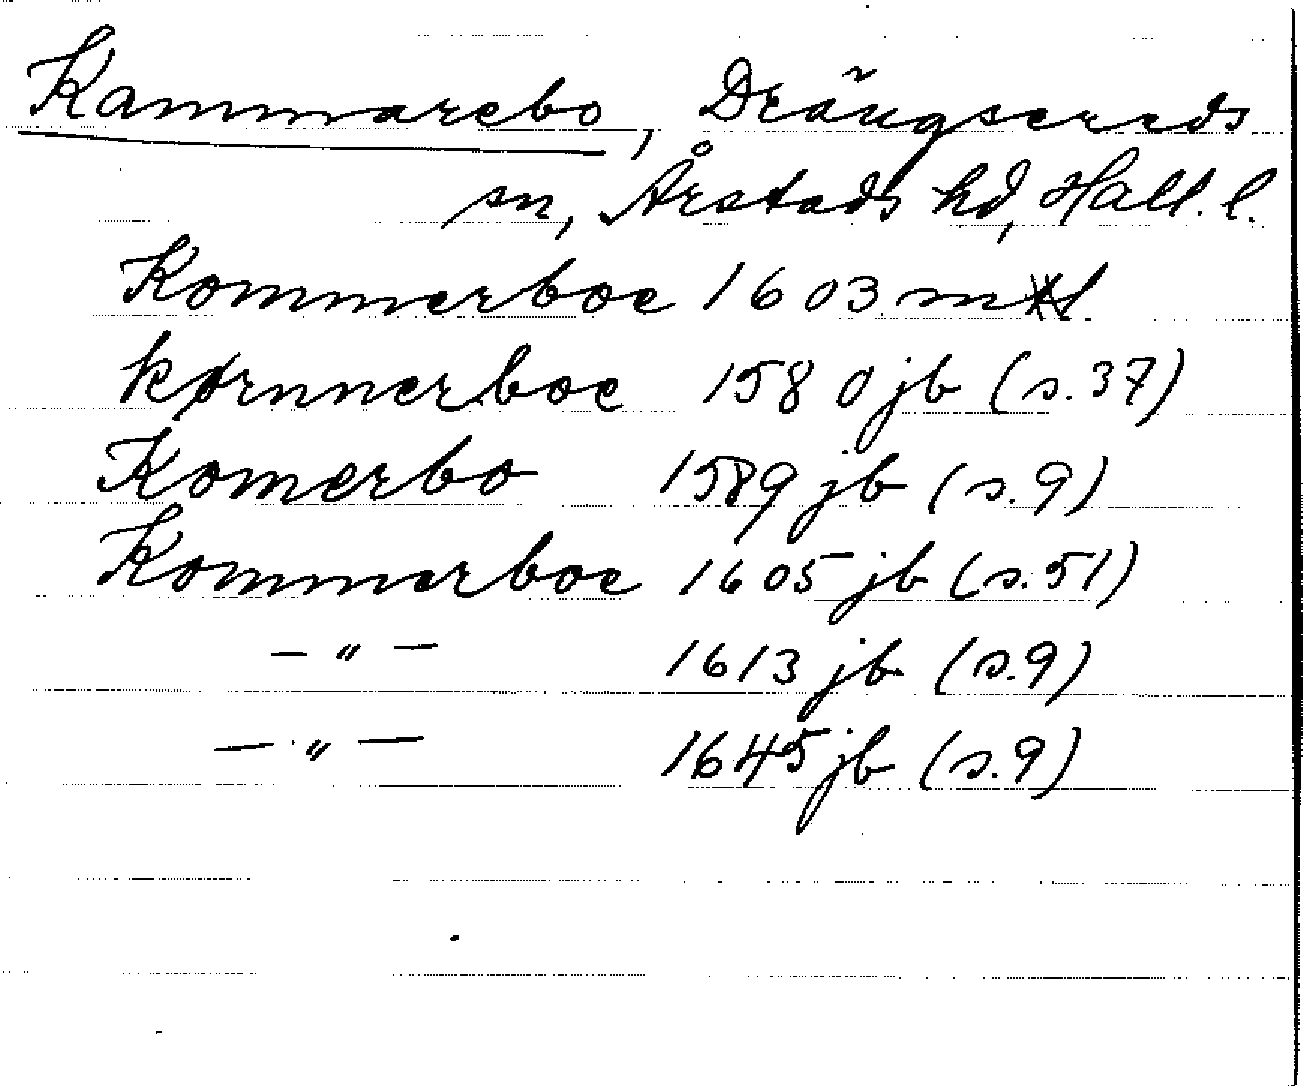 Kammarebo, Drängsereds
sn, Årstads hd, Hall. l.
Kommerboe 1603 mtl.
Kørnnerboe 1580 jb (s. 37)
Komerbo 1589 jb (s. 9)
Kommerboe 1605 jb (s. 51)
— " — 1613 jb (s. 9)
— " — 1645 jb (s. 9)